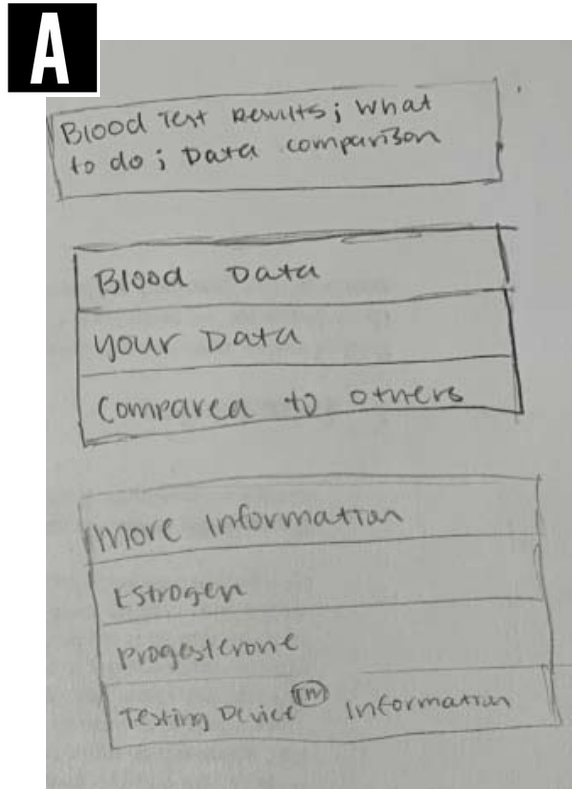 A
Blood Test Results; What
to do; Data comparison
Blood Data
Your Data
Compared to others
More Information
Estrogen
Progesterone
Testing Device TM Information